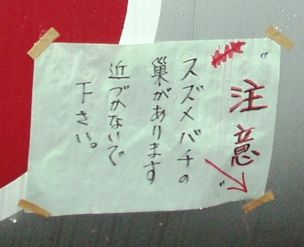 〝注意〟
スズメバチの
巣があります
近づかないで
下さい。